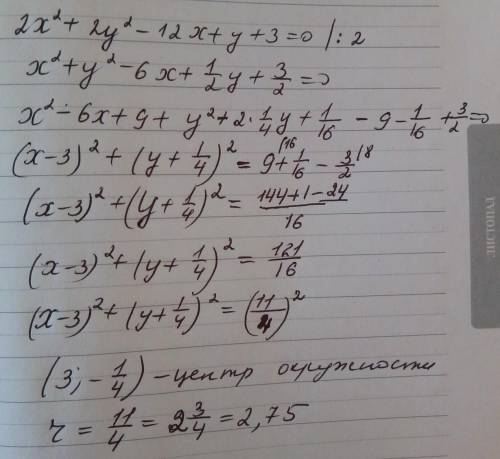 2x² + 2y² - 12x + y + 3 = 0 |: 2
x² + y² - 6x + 1/2 y + 3/2 = 0
x² - 6x + 9 + y² + 2·1/4 y + 1/16 - 9 - 1/16 + 3/2 = 0
(x-3)² + (y + 1/4)² = 9/16 + 1/16 - 3/2 /8
(x-3)² + (y + 1/4)² = (144+1-24)/16
(x-3)² + (y + 1/4)² = 121/16
(x-3)² + (y + 1/4)² = (11/4)²
(3; -1/4) - центр окружности
r = 11/4 = 2 3/4 = 2,75
ЛИСТОПАД